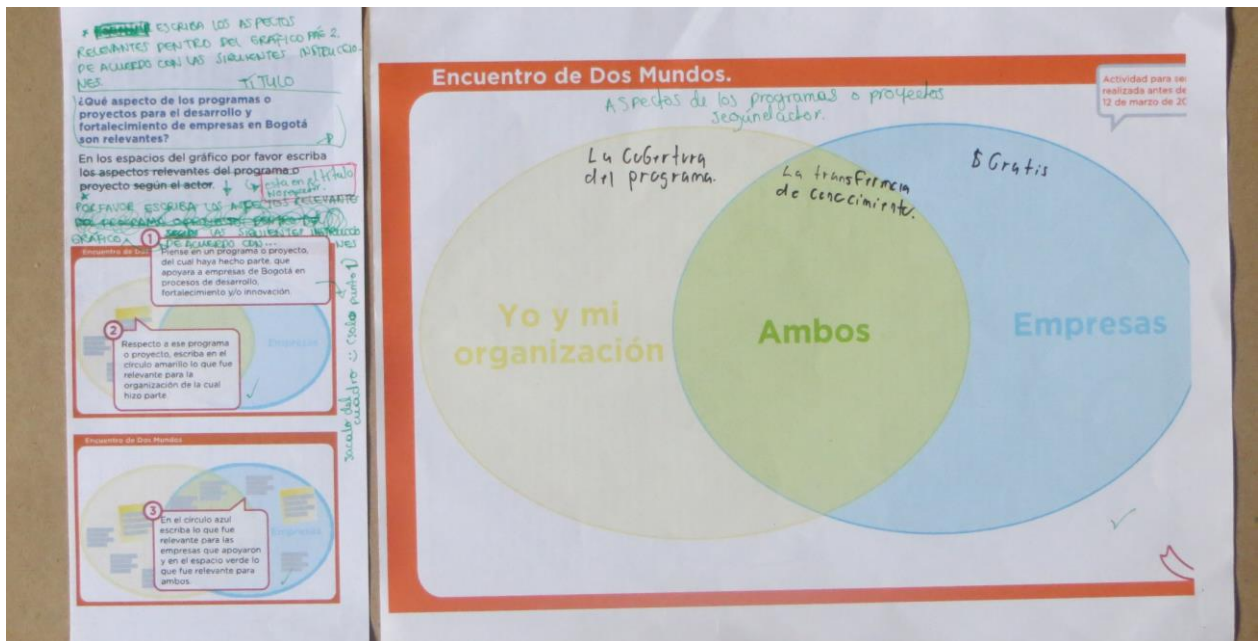 ESCRIBA LOS ASPECTOS
RELEVANTES DENTRO DEL GRÁFICO PAG 2.
DE ACUERDO CON LAS SIGUIENTES INSTRUCCIO-
NES
TÍTULO
¿Qué aspecto de los programas o
proyectos para el desarrollo y
fortalecimiento de empresas en Bogotá
son relevantes?
En los espacios del gráfico por favor escriba
los aspectos relevantes del programa o
proyecto según el actor.
esta en el título
POR FAVOR ESCRIBA LOS ASPECTOS RELEVANTE
LAS SIGUIENTES INSTRUCCIO
GRÁFICO
DE ACUERDO CON... NES
Encuentro de Dos
1
Piense en un programa o proyecto,
del cual haya hecho parte, que
apoyara a empresas de Bogotá en
procesos de desarrollo,
fortalecimiento y/o innovación.
2
Respecto a ese programa
o proyecto, escriba en el
círculo amarillo lo que fue
relevante para la
organización de la cual
hizo parte.
Empresas
sacarlo del cuadro :) (solo punto 1)
Encuentro de Dos Mundos
3
En el círculo azul
escriba lo que fue
relevante para las
empresas que apoyaron
y en el espacio verde lo
que fue relevante para
ambos.
Empresas
Encuentro de Dos Mundos.
Actividad para se
realizada antes de
12 de marzo de 20
Aspectos de los programas o proyectos
según el actor.
La Cobertura
del programa.
La transferencia
de conocimiento.
$ Gratis
Yo y mi
organización
Ambos
Empresas